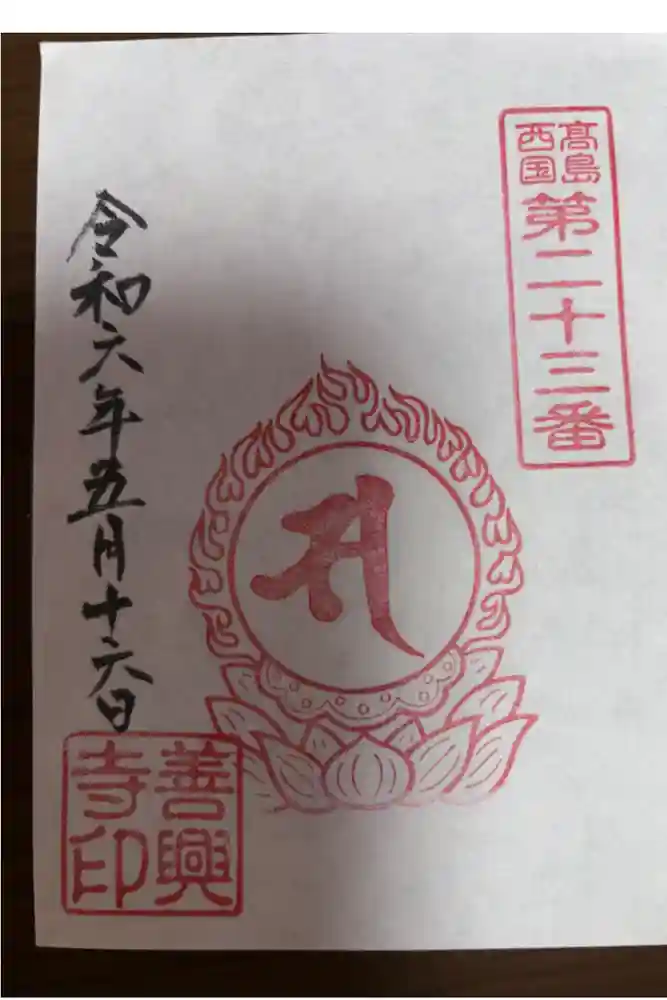 髙島
西国
第二十三番
स
令和六年五月十六日
善興
寺印